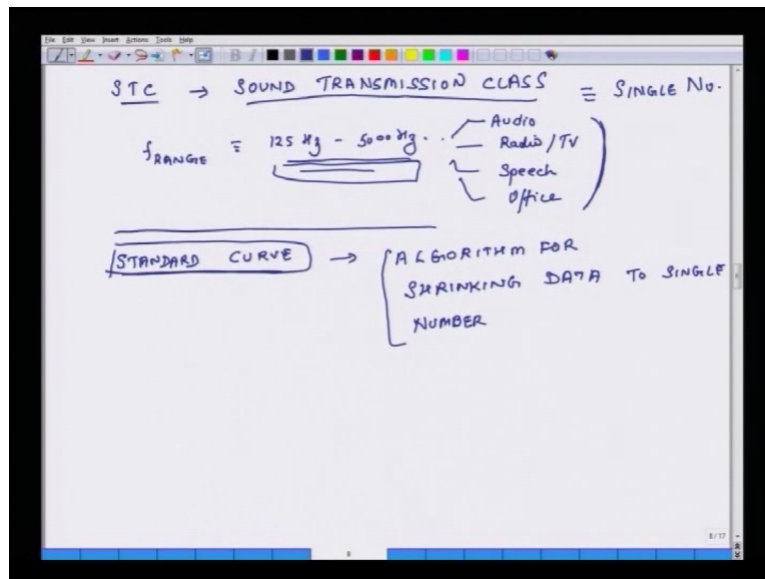 File Edit View Insert Actions Tools Help
STC → SOUND TRANSMISSION CLASS ≡ SINGLE No.
fRANGE ≡ 125 Hz - 5000 Hz ..
Audio
Radio/TV
Speech
Office
STANDARD CURVE → ALGORITHM FOR
SHRINKING DATA TO SINGLE
NUMBER
8/17
8